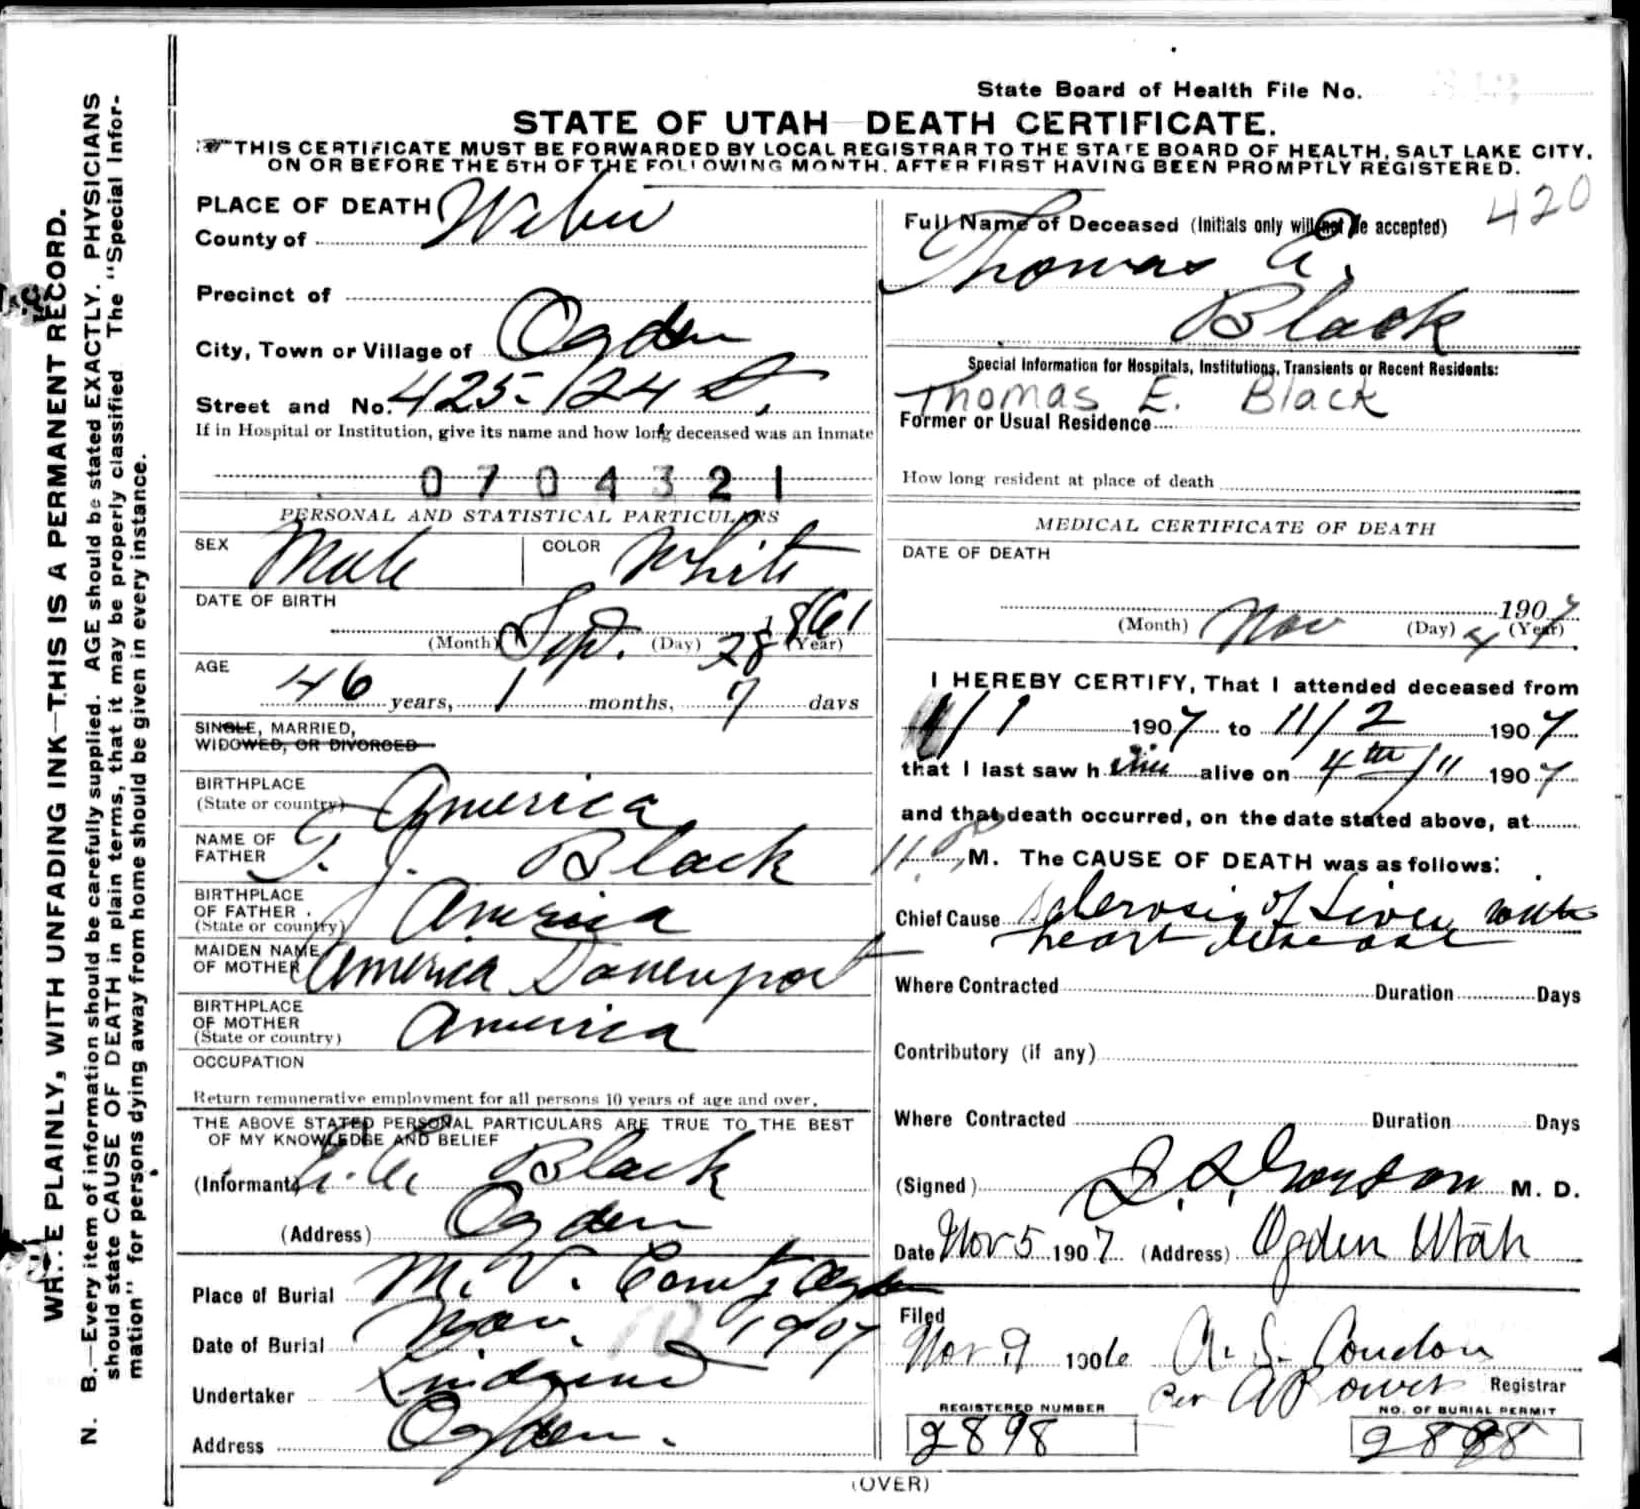 State Board of Health File No.
STATE OF UTAH DEATH CERTIFICATE.
THIS CERTIFICATE MUST BE FORWARDED BY LOCAL REGISTRAR TO THE STATE BOARD OF HEALTH, SALT LAKE CITY,
ON OR BEFORE THE 5TH OF THE FOLLOWING MONTH, AFTER FIRST HAVING BEEN PROMPTLY REGISTERED.
420
PLACE OF DEATH
County of Weber
Precinct of
City, Town or Village of Ogden
Street and No. 425-/24 St.
If in Hospital or Institution, give its name and how long deceased was an inmate
0704321
PERSONAL AND STATISTICAL PARTICULARS
SEX Male COLOR White
DATE OF BIRTH
(Month) Sept. (Day) 28 1861 (Year)
AGE
46 years, 1 months, 7 days
SINGLE, MARRIED,
WIDOWED, OR DIVORCED
BIRTHPLACE
(State or country) America
NAME OF
FATHER T. J. Black
BIRTHPLACE
OF FATHER
(State or country) America
MAIDEN NAME
OF MOTHER America Davenport
BIRTHPLACE
OF MOTHER
(State or country) America
OCCUPATION
Return remunerative employment for all persons 10 years of age and over.
THE ABOVE STATED PERSONAL PARTICULARS ARE TRUE TO THE BEST
OF MY KNOWLEDGE AND BELIEF
(Informant) Black
(Address) Ogden
Place of Burial M. V. Ogden
Date of Burial Nov. 10 1907
Undertaker
Address Ogden.
Full Name of Deceased (Initials only will not be accepted)
Thomas E.
Black
Special Information for Hospitals, Institutions, Transients or Recent Residents:
Thomas E. Black
Former or Usual Residence
How long resident at place of death
MEDICAL CERTIFICATE OF DEATH
DATE OF DEATH
1907
(Month) Nov (Day) 4 (Year)
I HEREBY CERTIFY, That I attended deceased from
11/1 1907 to 11/2 1907
that I last saw him alive on 4th/11 1907
and that death occurred, on the date stated above, at
M. The CAUSE OF DEATH was as follows:
Chief Cause Sclerosis of Liver with
heart disease
Where Contracted Duration Days
Contributory (if any)
Where Contracted Duration Days
(Signed) M. D.
Date Nov 5 1907 (Address) Ogden Utah
Filed
Nov 9 190 A. S. Condon
Per Registrar
REGISTERED NUMBER
2898
NO. OF BURIAL PERMIT
(OVER)
WRITE PLAINLY, WITH UNFADING INK—THIS IS A PERMANENT RECORD.
N. B.—Every item of information should be carefully supplied. AGE should be stated EXACTLY. PHYSICIANS
should state CAUSE OF DEATH in plain terms, that it may be properly classified The "Special Infor-
mation" for persons dying away from home should be given in every instance.